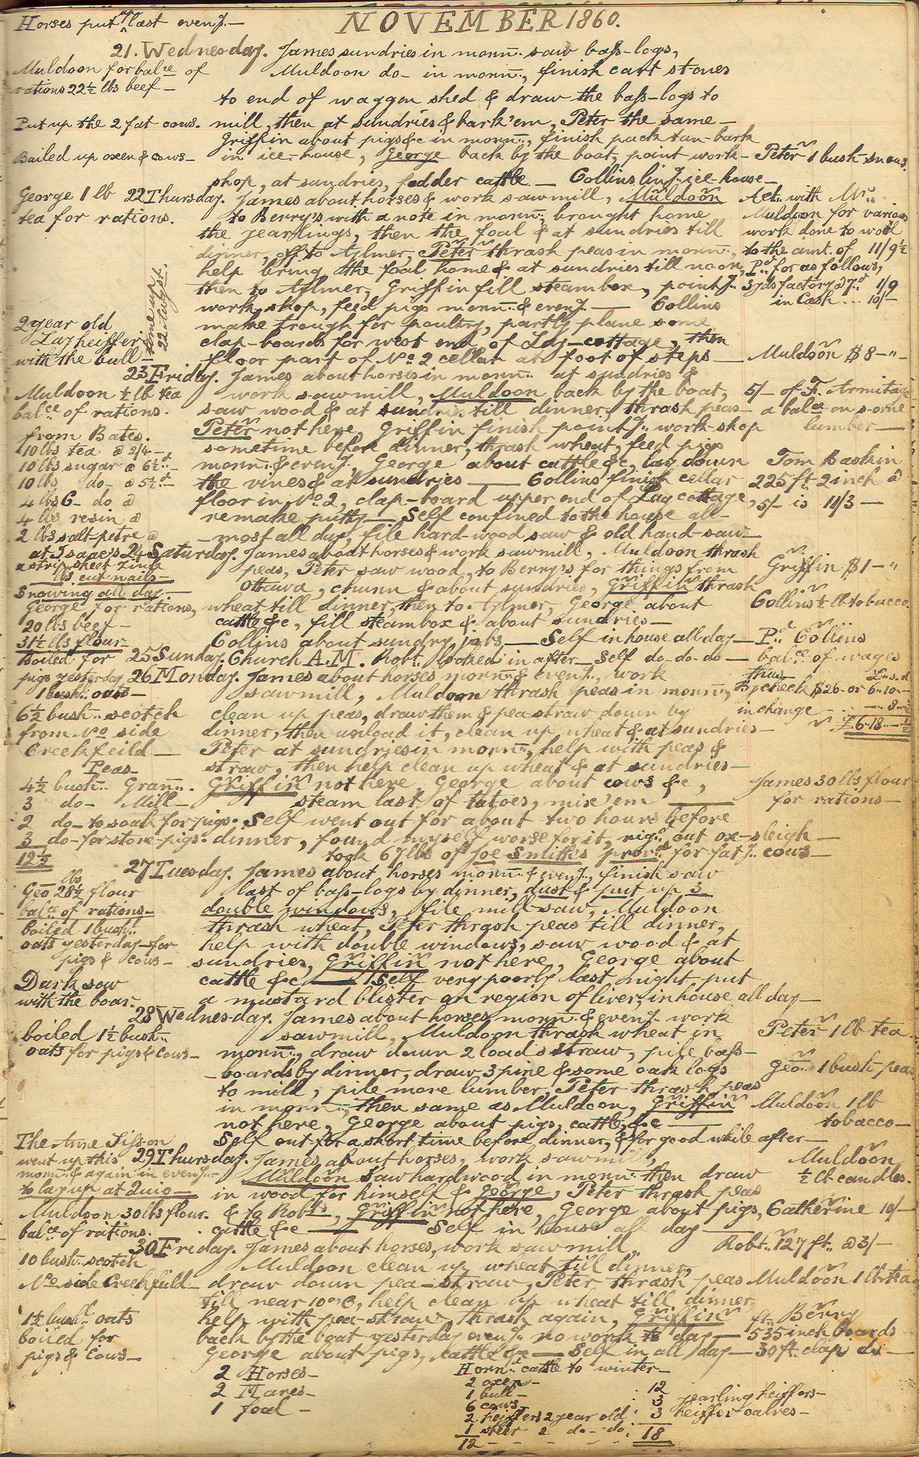 NOVEMBER 1860.
Horses put in last even'g.—
21. Wednesday. James sundries in morn'g. saw bass-logs,
Muldoon for bal'ce of
rations 22½ lbs beef—
Muldoon do- in morn'g., finish cart stones
to end of waggon shed & draw the bass-logs to
Put up the 2 fat cows.
mill, then at sundries & bark 'em, Peter the same—
Griffin about pigs &c in morn'g., finish pack tan-bark
Boiled up oxen & cows—
in ice-house, George back by the boat, paint work-
Peter 1 bush
shop, at sundries, fodder cattle— Collins ice-house—
George 1 lb
tea for rations.
22 Thursday. James about horses & work sawmill, Muldoon
to Berry's with a note in morn'g. brought home
the yearlings, then the foal & at sundries till
dinner, off to Aylmer, Peter thrash peas in morn'g.
help bring the foal home & at sundries till noon,
then to Aylmer, Griffin fill steambox, point'g.
work-shop, feed pigs morn'g. & even'g.— Collins
make trough for poultry, partly plane some
clap-boards for west end of Lay-cottage, then
floor part of No. 2 cellar at foot of steps—
Act. with
Muldoon for various
work done to wood
to the amt. of 11/9½
P'd. for as follows,
3 yds factory @ 7d.. 1/9
in Cash ... 10/-
Muldoon $8-"-
2 year old
heiffer
with the bull
some up
22 August.
23 Friday. James about horses in morn'g. at sundries &
Muldoon ½ lb tea
bal'ce of rations.
work sawmill, Muldoon back by the boat,
saw wood & at sundries till dinner, thrash peas—
Peter not here, Griffin finish point'g. work-shop
sometime before dinner, thrash wheat, feed pigs
morn'g. & even'g., George about cattle &c, lay down
the vines & at sundries — Collins finish cellar
floor in No. 2, clap-board upper end of Lay cottage,
remake putty— Self confined to the house al-
-most all day, file hard-wood saw & old hand-saw—
5/- of F. Armitage
a bal'ce on some
lumber—
Tom Baskin
225 ft. 2 inch @
5/- is 11/3—
from Bates.
10 lbs tea @ 2/4—
10 lbs sugar @ 6½d.-
10 lbs do- @ 5½d.-
4 lbs G- do @
4 lbs resin @
2 lbs salt-petre @
at Isaac's
a strip sheet zink
lbs cut nails-
24 Saturday. James about horses & work sawmill, Muldoon thrash
peas, Peter saw wood, to Berry's for things from
Ottawa, churn & about sundries, Griffin thrash
wheat till dinner, then to Aylmer, George about
cattle &c, fill steambox & about sundries—
Collins about sundry jobs— Self in house all day—
Griffin $1-"
Collins ½ lb tobacco.
Snowing all day—
George for rations,
20 lbs beef—
31½ lbs flour—
P'd. Collins
bal'ce of wages
thus £.s.d
By check $26- or 6-10-
in change
£6-18
25 Sunday. Church A.M. Robt. looked in after— Self do-do-do—
Boiled for
pigs yesterday
1 bush. oats—
26 Monday. James about horses morn'g. & even'g., work
sawmill, Muldoon thrash peas in morn'g.,
clean up peas, draw them & pea straw down by
dinner, then unload it, clean up wheat & at sundries—
Peter at sundries in morn'g., help with peas &
straw, then help clean up wheat & at sundries—
Griffin not here, George about cows &c,
steam last of tatoes, mix 'em—
Self went out for about two hours before
dinner, found myself worse for it, rig'd. out ox-sleigh—
took 67 lbs of Joe Smith's prov'd. for fat'g. cows—
6½ bush. scotch
from No side
Creekfeild—
Peas—
4½ bush. Gran'y.
3 do- Mill-
2 do- to soak for pigs.
3 do- for store pigs.
12½
James 30 lbs flour
for rations—
27 Tuesday. James about horses morn'g. & even'g., finish saw
last of bass-logs by dinner, dust & put up 3
double windows, file mill saw, Muldoon
thrash wheat, Peter thrash peas till dinner,
help with double windows, saw wood & at
sundries, Griffin not here, George about
cattle &c— Self very poorly last night put
a mustard blister on region of liver, in house all day—
lbs
Geo. 28½ flour
bal'ce of rations—
boiled 1 bush.
oats yesterday for
pigs & cows—
Dark sow
with the boar.
28 Wednesday. James about horses morn'g. & even'g. work
sawmill, Muldoon thrash wheat in
morn'g., draw down 2 loads straw, pile bass-
-boards by dinner, draw 3 pine & some oak logs
to mill, pile more lumber, Peter thrash peas
in morn'g., then same as Muldoon, Griffin
not here, George about pigs, cattle, &c—
Self out for a short time before dinner, & for good while after—
boiled 1½ bush.
oats for pigs & cows—
Peter 1 lb tea
Geo. 1 bush peas
Muldoon 1 lb
tobacco—
The Anne Sisson
went up this
morn'g. & again in even'g.
to lay up at Quio—
29 Thursday. James about horses, work sawmill,
Muldoon saw hardwood in morn'g. then draw
in wood for himself & George, Peter thrash peas
& to Rob'ts, Griffin not here, George about pigs,
cattle &c— Self in house all day—
Muldoon
½ lb candles.
Catherine 10/-
Muldoon 30 lbs flour.
bal'ce of rations.
30 Friday. James about horses, work sawmill,
Muldoon clean up wheat till dinner,
draw down pea-straw, Peter thrash peas
till near 10 o'c, help clean up wheat till dinner,
help with pea-straw, thrash again, Griffin
back by the boat yesterday even'g. no work to day—
George about pigs, cattle &c— Self in all day—
Robt. 127 ft. @ 3/-
Muldoon 1 lb tea
A. Berry
535 inch boards
30 ft. clap do—
10 bush. scotch
No. side Creekfeild—
1½ bush. oats
boiled for
pigs & cows—
2 Horses—
2 Mares—
1 foal—
Horn'd. cattle to winter—
2 oxen—
1 bull—
6 cows
2 heiffers 2 year old
1 steer 2 do-do.
12
12
3 yearling heiffers—
3 heiffer calves—
18